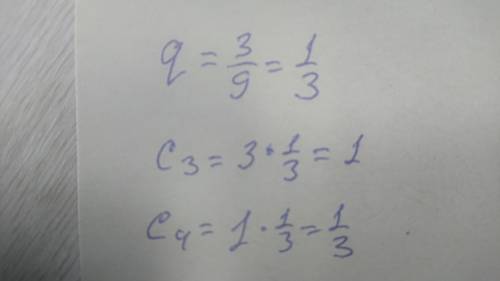 q = 3/9 = 1/3
c₃ = 3 · 1/3 = 1
c₄ = 1 · 1/3 = 1/3